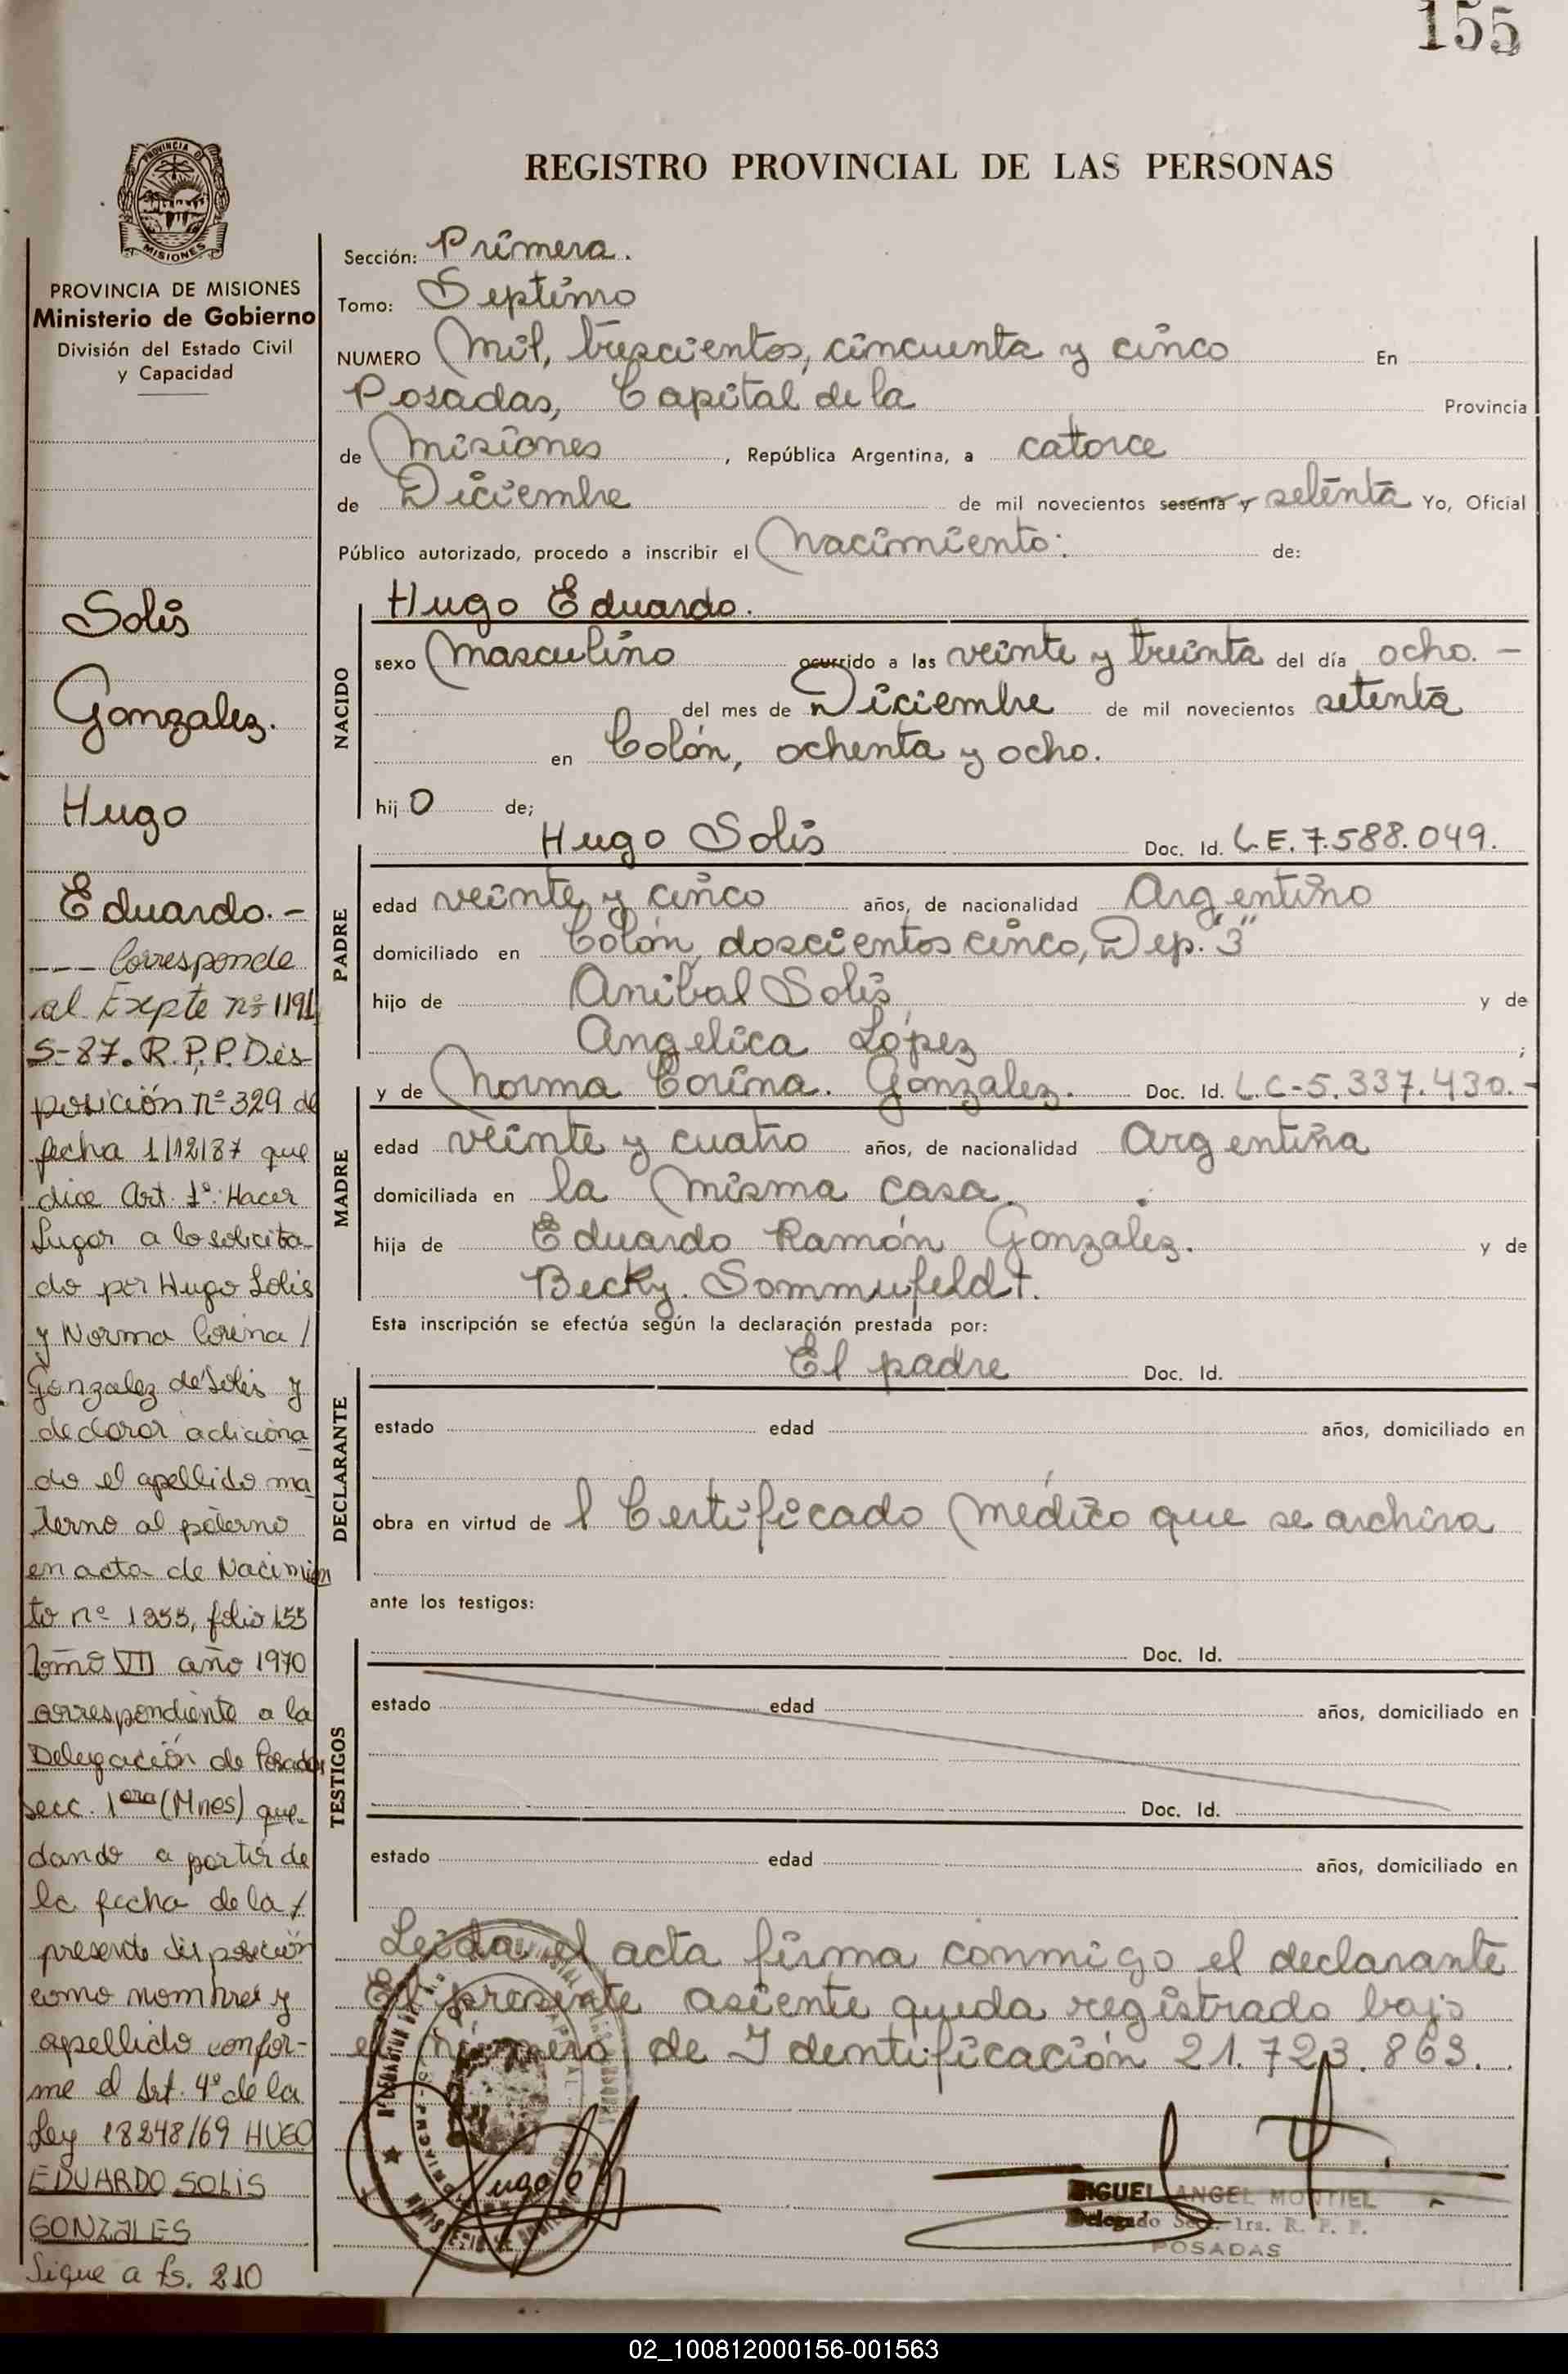 155
REGISTRO PROVINCIAL DE LAS PERSONAS
PROVINCIA DE
MISIONES
PROVINCIA DE MISIONES
Ministerio de Gobierno
División del Estado Civil
y Capacidad
Solis
Gonzalez.
Hugo
Eduardo.-
--- Corresponde
al Expte nº 1191
S-87. R.P.P. Dis-
posición nº 329 de
fecha 1/12/87 que
dice Art. 1º: Hacer
Lugar a lo solicita-
do por Hugo Solis
y Norma Corina /
Gonzalez de Solis y
declarar adiciona-
do el apellido ma-
terno al paterno
en acta de Nacimien
to nº 1355, folio 155
Tomo VII año 1970
correspondiente a la
Delegación de Posadas
secc. 1era (Mnes) que-
dando a partir de
la fecha de la /
presente disposición
como nombres y
apellido confor-
me el Art. 4º de la
Ley 18248/69 HUGO
EDUARDO SOLIS
GONZALES
Sigue a fs. 210
Sección: Primera.
Tomo: Septimo
NUMERO Mil, trescientos, cincuenta y cinco En
Posadas, Capital de la Provincia
de Misiones, República Argentina, a catorce
de Diciembre de mil novecientos sesenta y setenta Yo, Oficial
Público autorizado, procedo a inscribir el Nacimiento: de:
NACIDO
Hugo Eduardo.
sexo Masculino ocurrido a las veinte y treinta del día ocho. -
del mes de Diciembre de mil novecientos setenta
en Colón, ochenta y ocho.
hijo de;
PADRE
Hugo Solis Doc. Id. L.E. 7.588.049.
edad veinte y cinco años, de nacionalidad Argentino
domiciliado en Colón, doscientos cinco, Dep. "3"
hijo de Anibal Solis y de
Angelica López ;
MADRE
y de Norma Corina. Gonzalez. Doc. Id. L.C-5.337.430.-
edad veinte y cuatro años, de nacionalidad Argentina
domiciliada en la misma casa.
hija de Eduardo Ramón Gonzalez. y de
Becky. Sommufeldt.
Esta inscripción se efectúa según la declaración prestada por:
DECLARANTE
El padre Doc. Id.
estado edad años, domiciliado en
obra en virtud de l Certificado Médico que se archiva
ante los testigos:
TESTIGOS
Doc. Id.
estado edad años, domiciliado en
Doc. Id.
estado edad años, domiciliado en
Leida el acta firma conmigo el declarante
El presente asiente queda registrado bajo
el número de Identificación 21.723.863.
Hugo
MIGUEL ANGEL MONTIEL
Delegado Secc. 1ra. R. P. P.
POSADAS
02_100812000156-001563